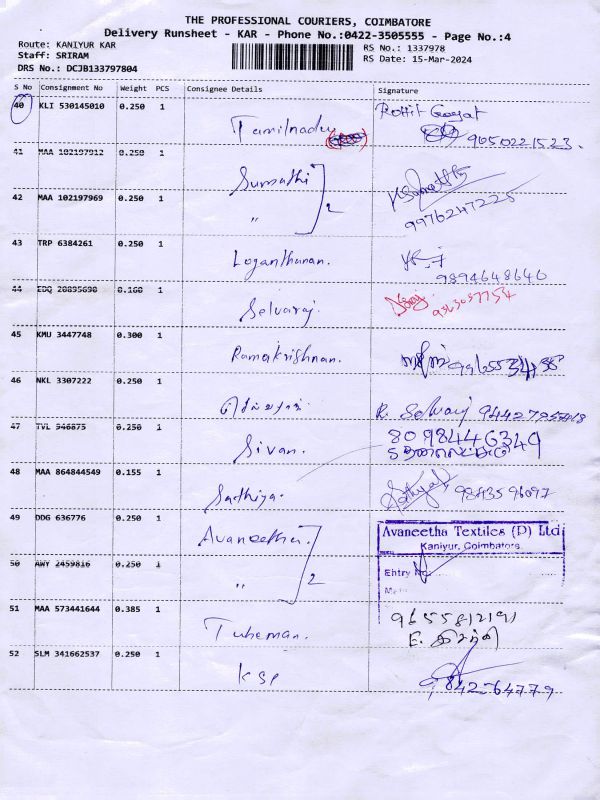 THE PROFESSIONAL COURIERS, COIMBATORE
Delivery Runsheet - KAR - Phone No.:0422-3505555 - Page No.:4
Route: KANIYUR KAR
RS No.: 1337978
Staff: SRIRAM
RS Date: 15-Mar-2024
DRS No.: DCJB133797804
S No Consignment No Weight PCS Consignee Details Signature
40 KLI 530145010 0.250 1
Tamilnadu
9650221523.
41 MAA 102197912 0.250 1
Sumathi
42 MAA 102197969 0.250 1
" 2
9976247225
43 TRP 6384261 0.250 1
Loganthanan.
9894648640
44 EDQ 20895690 0.160 1
Selvaraj
45 KMU 3447748 0.300 1
Ramakrishnan.
46 NKL 3307222 0.250 1
R. Selvaraj
47 TVL 946875 0.250 1
Sivan.
8098446349
48 MAA 864844549 0.155 1
Sathiya.
9843596097
49 DDG 636776 0.250 1
Avaneetha.
Avaneetha Textiles (P) Ltd
Kaniyur, Coimbatore.
50 AWY 2459816 0.250 1
" 2
Entry No.
51 MAA 573441644 0.385 1
Tubeman.
9655812191
52 SLM 341662537 0.250 1
KSP
9842264779